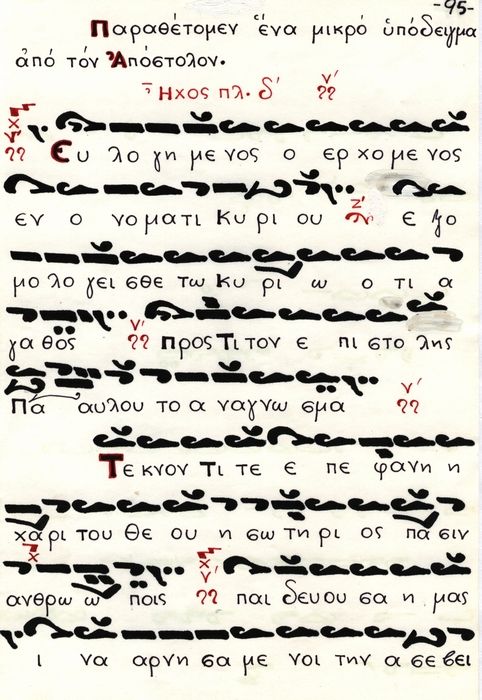 -95-
Παραθέτομεν ἕνα μικρό ὑπόδειγμα
ἀπό τόν Ἀπόστολον.
Ἦχος πλ. δ΄ ν΄
Ευ λο γη με νος ο ερ χο με νος
εν ο νο μα τι Κυ ρι ου ε ξο
μο λο γει σθε τω Κυ ρι ω ο τι α
γα θος ν΄ προς Τι τον ε πι στο λης
Πα αυλου το α ναγνω σμα ν΄
Τε κνον Τι τε ε πε φανη η
χα ρι του Θε ου η σω τη ρι ος πα σιν
ανθρω ω ποις ν΄ παι δευου σα η μας
ι να αρνη σα με νοι την α σε βει